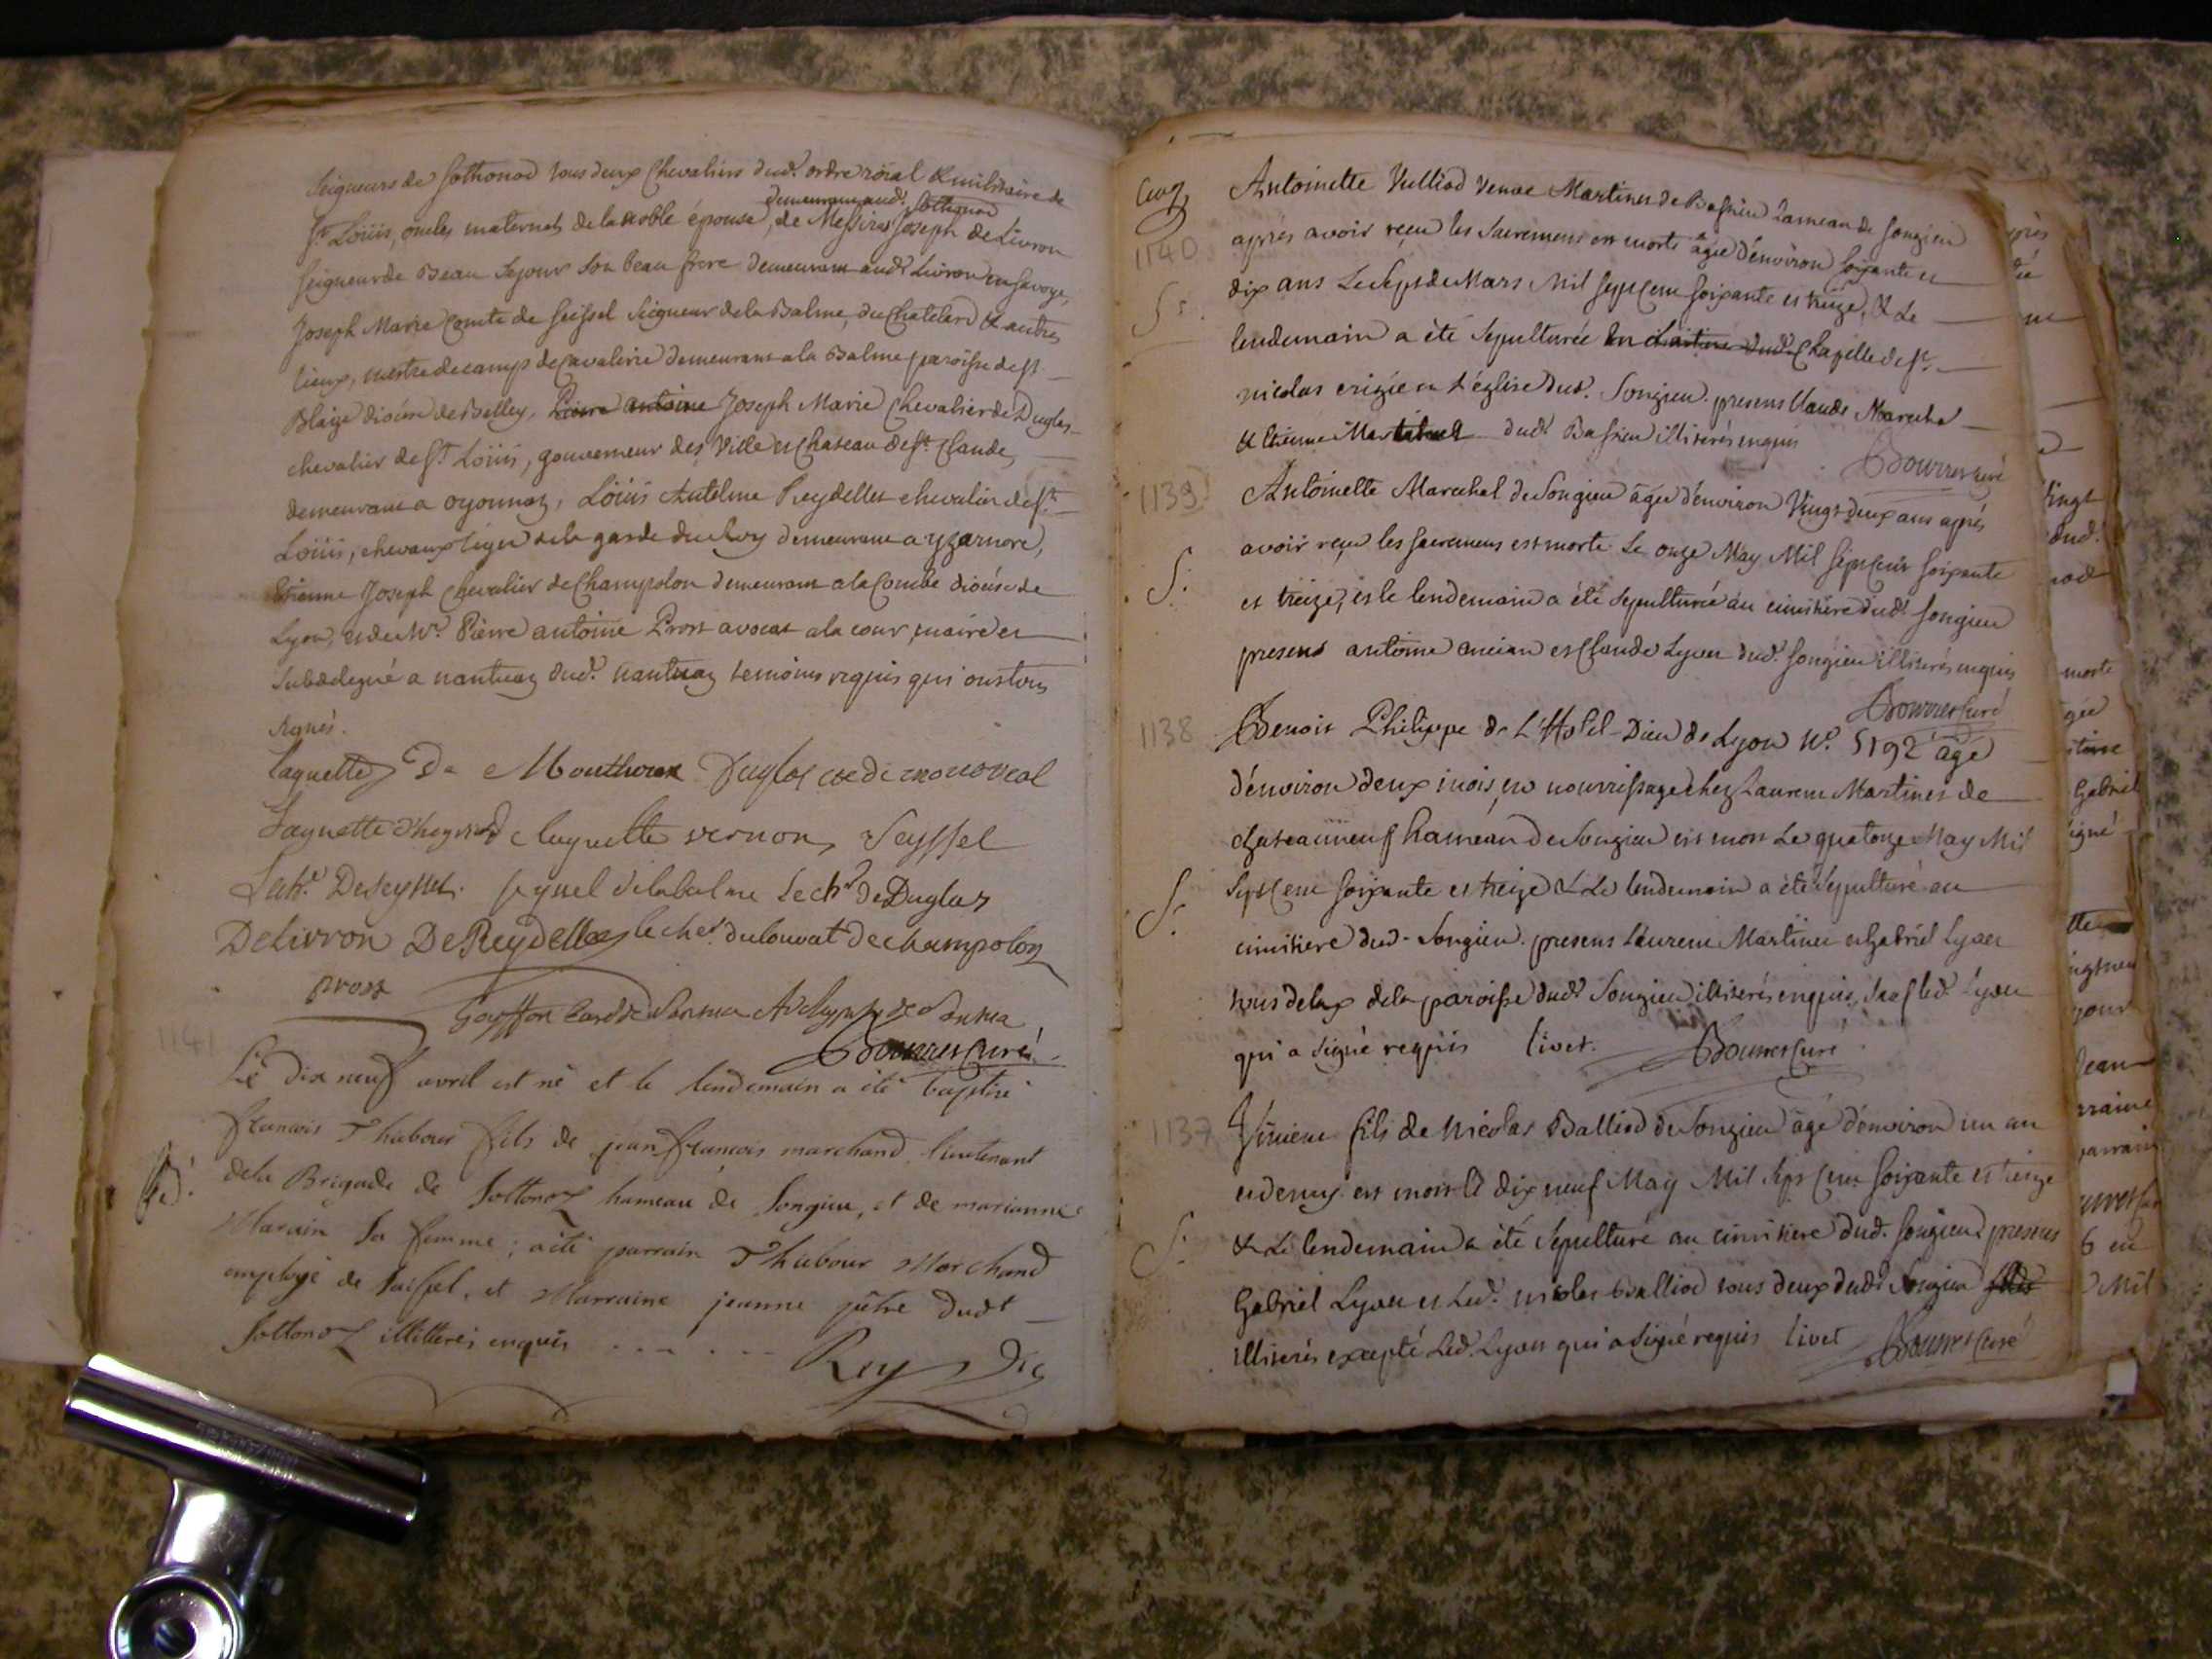 Seigneurs de Sothonod tous deux Chevaliers dud. ordre roïal & militaire de
demeurans aud. Sothonod
St. Loüis, oncles maternels de la noble épouse, de Messire Joseph de Livron
Seigneur de Beau Sejour son beau frere demeurant aud. Livron en Savoye,
Joseph Marie Comte de Seissel Seigneur de la Balme, du Chatelard & autres
lieux, mestre de camp de Cavalerie demeurant a la Balme paroisse de St.
Blaize diocése de Belley, Pierre antoine Joseph Marie Chevalier de Duglas
chevalier de St. Loüis, gouverneur des Ville et Chateau de St. Claude,
demeurant a oyonnaz, Loüis Antelme Reydellet chevalier de St.
Loüis, chevaux leger de la garde du Roy demeurant a yzarnore,
Etienne Joseph Chevalier de Champolon demeurant a la Combe diocése de
Lyon, et de Mr. Pierre antoine Prost avocat a la cour, maire et
subdelegué a nantuaz dud. nantuaz temoins requis qui ont tous
signés.
Laguette De Mouthoux Duglas
Laguette d'heyriad laguette vernon, Seyssel
Deseyssel. seyssel de la balme Le chr. de Duglas
De Livron De Reydellet le cher. dulouvat de champolon
prost
Bourret Curé
1141
Le dix neuf avril est né et le lendemain a été baptisé
francois Thiebour fils de jean francois marchand lieutenant
de la Brigade de Sottonoz hameau de Songieu, et de marianne
Marain sa femme ; a été parrain Thiebour Marchand
employé de Seissel, et Marraine jeanne pêtre dudt
Sottonoz illitterés enquis
Rey vic
1140
Antoinette Vulliod veuve Martinet de Bassieu hameau de Songieu
aprés avoir reçu les Sacremens est morte âgée d'environ soixante et
dix ans Le Sept de Mars Mil sept cent soixante et treize, & Le
lendemain a été Sepulturée Chapelle de St.
nicolas erigée en l'église dud. Songieu. presens Claude Marechal
& Etienne dud. Bassieu illiterés enquis
Bourret curé
1139
Antoinette Marechal de Songieu âgée d'environ Vingt deux ans aprés
avoir reçu les sacremens est morte Le onze May Mil sept cent soixante
S.
et treize, et le lendemain a été sepulturée au cimitiere dud. Songieu
presens antoine ancian et Claude Lyvet dud. Songieu illiterés enquis
Bourret curé
1138
Benoit Philippe de L'Hotel-Dieu de Lyon N°. 5192 âgé
d'environ deux mois, en nourrissage chez Laurent Martinet de
chateauneuf hameau de Songieu est mort Le quatorze May Mil
S.
Sept cent soixante et treize & Le lendemain a été Sepulturé au
cimitiere dud. Songieu. presens Laurent Martinet et Gabriel Lyvet
tous deux de la paroisse dud. Songieu illiterés enquis, sauf led. Lyvet
qui a signé requis livet. Bourret Curé
1137
fils de Nicolas Balliod de Songieu âgé d'environ un an
et demy est mort le dix neuf May Mil sept cent soixante et treize
S.
& Le lendemain a été Sepulturé au cimitiere dud. Songieu. presens
Gabriel Lyvet et Led. nicolas Balliod tous deux dud. Songieu
illiterés excepté Led. Lyvet qui a signé requis livet Bourret Curé